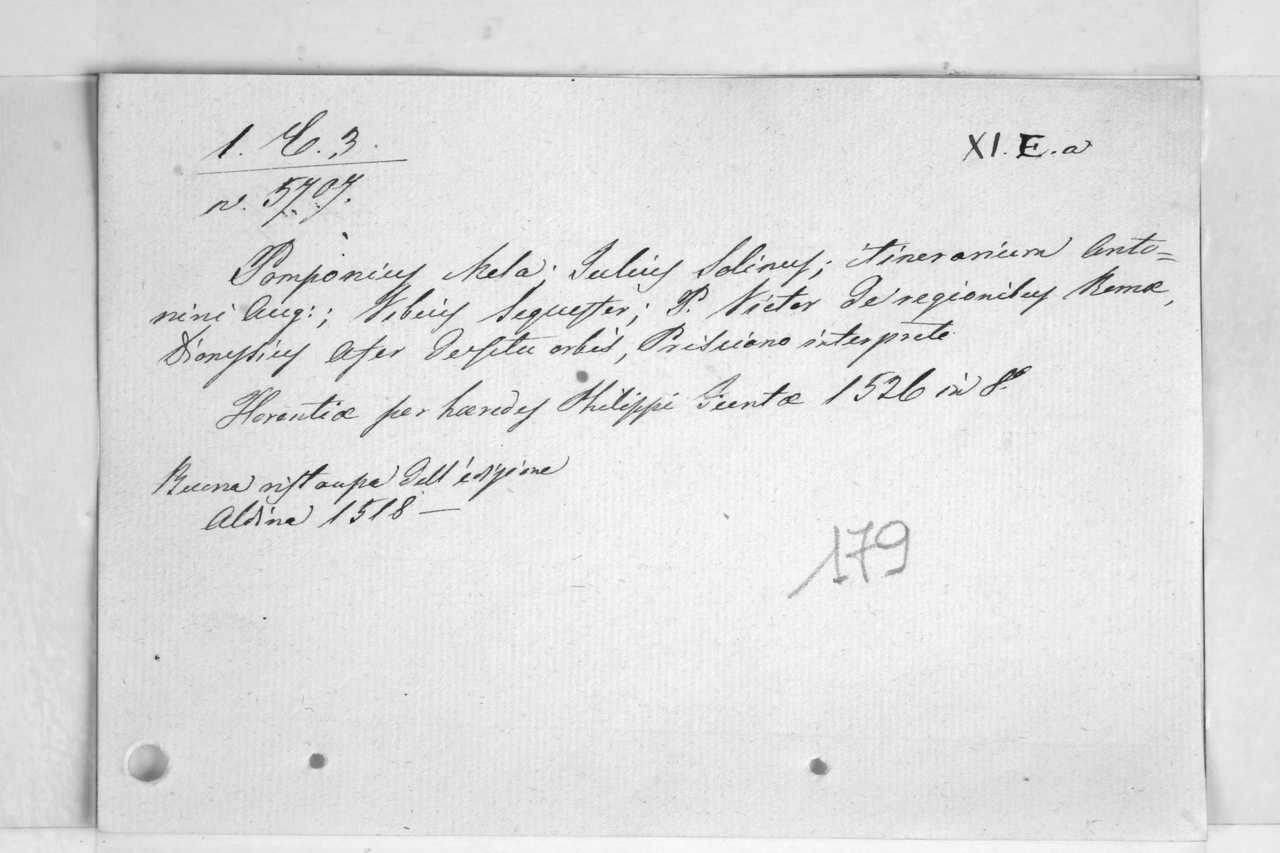 1. E. 3.
XI. E. a
n. 5707.
Pomponius Mela; Julius Solinus; itinerarium Anto=
nini Aug:; Vibius Sequester; P. Victor de regionibus Romæ,
Dionysius Afer de situ orbis, Prisciano interprete
Florentiæ per hæredes Philippi Juntæ 1526 in 8.º
Buona ristampa dell'edizione
Aldina 1518 —
179